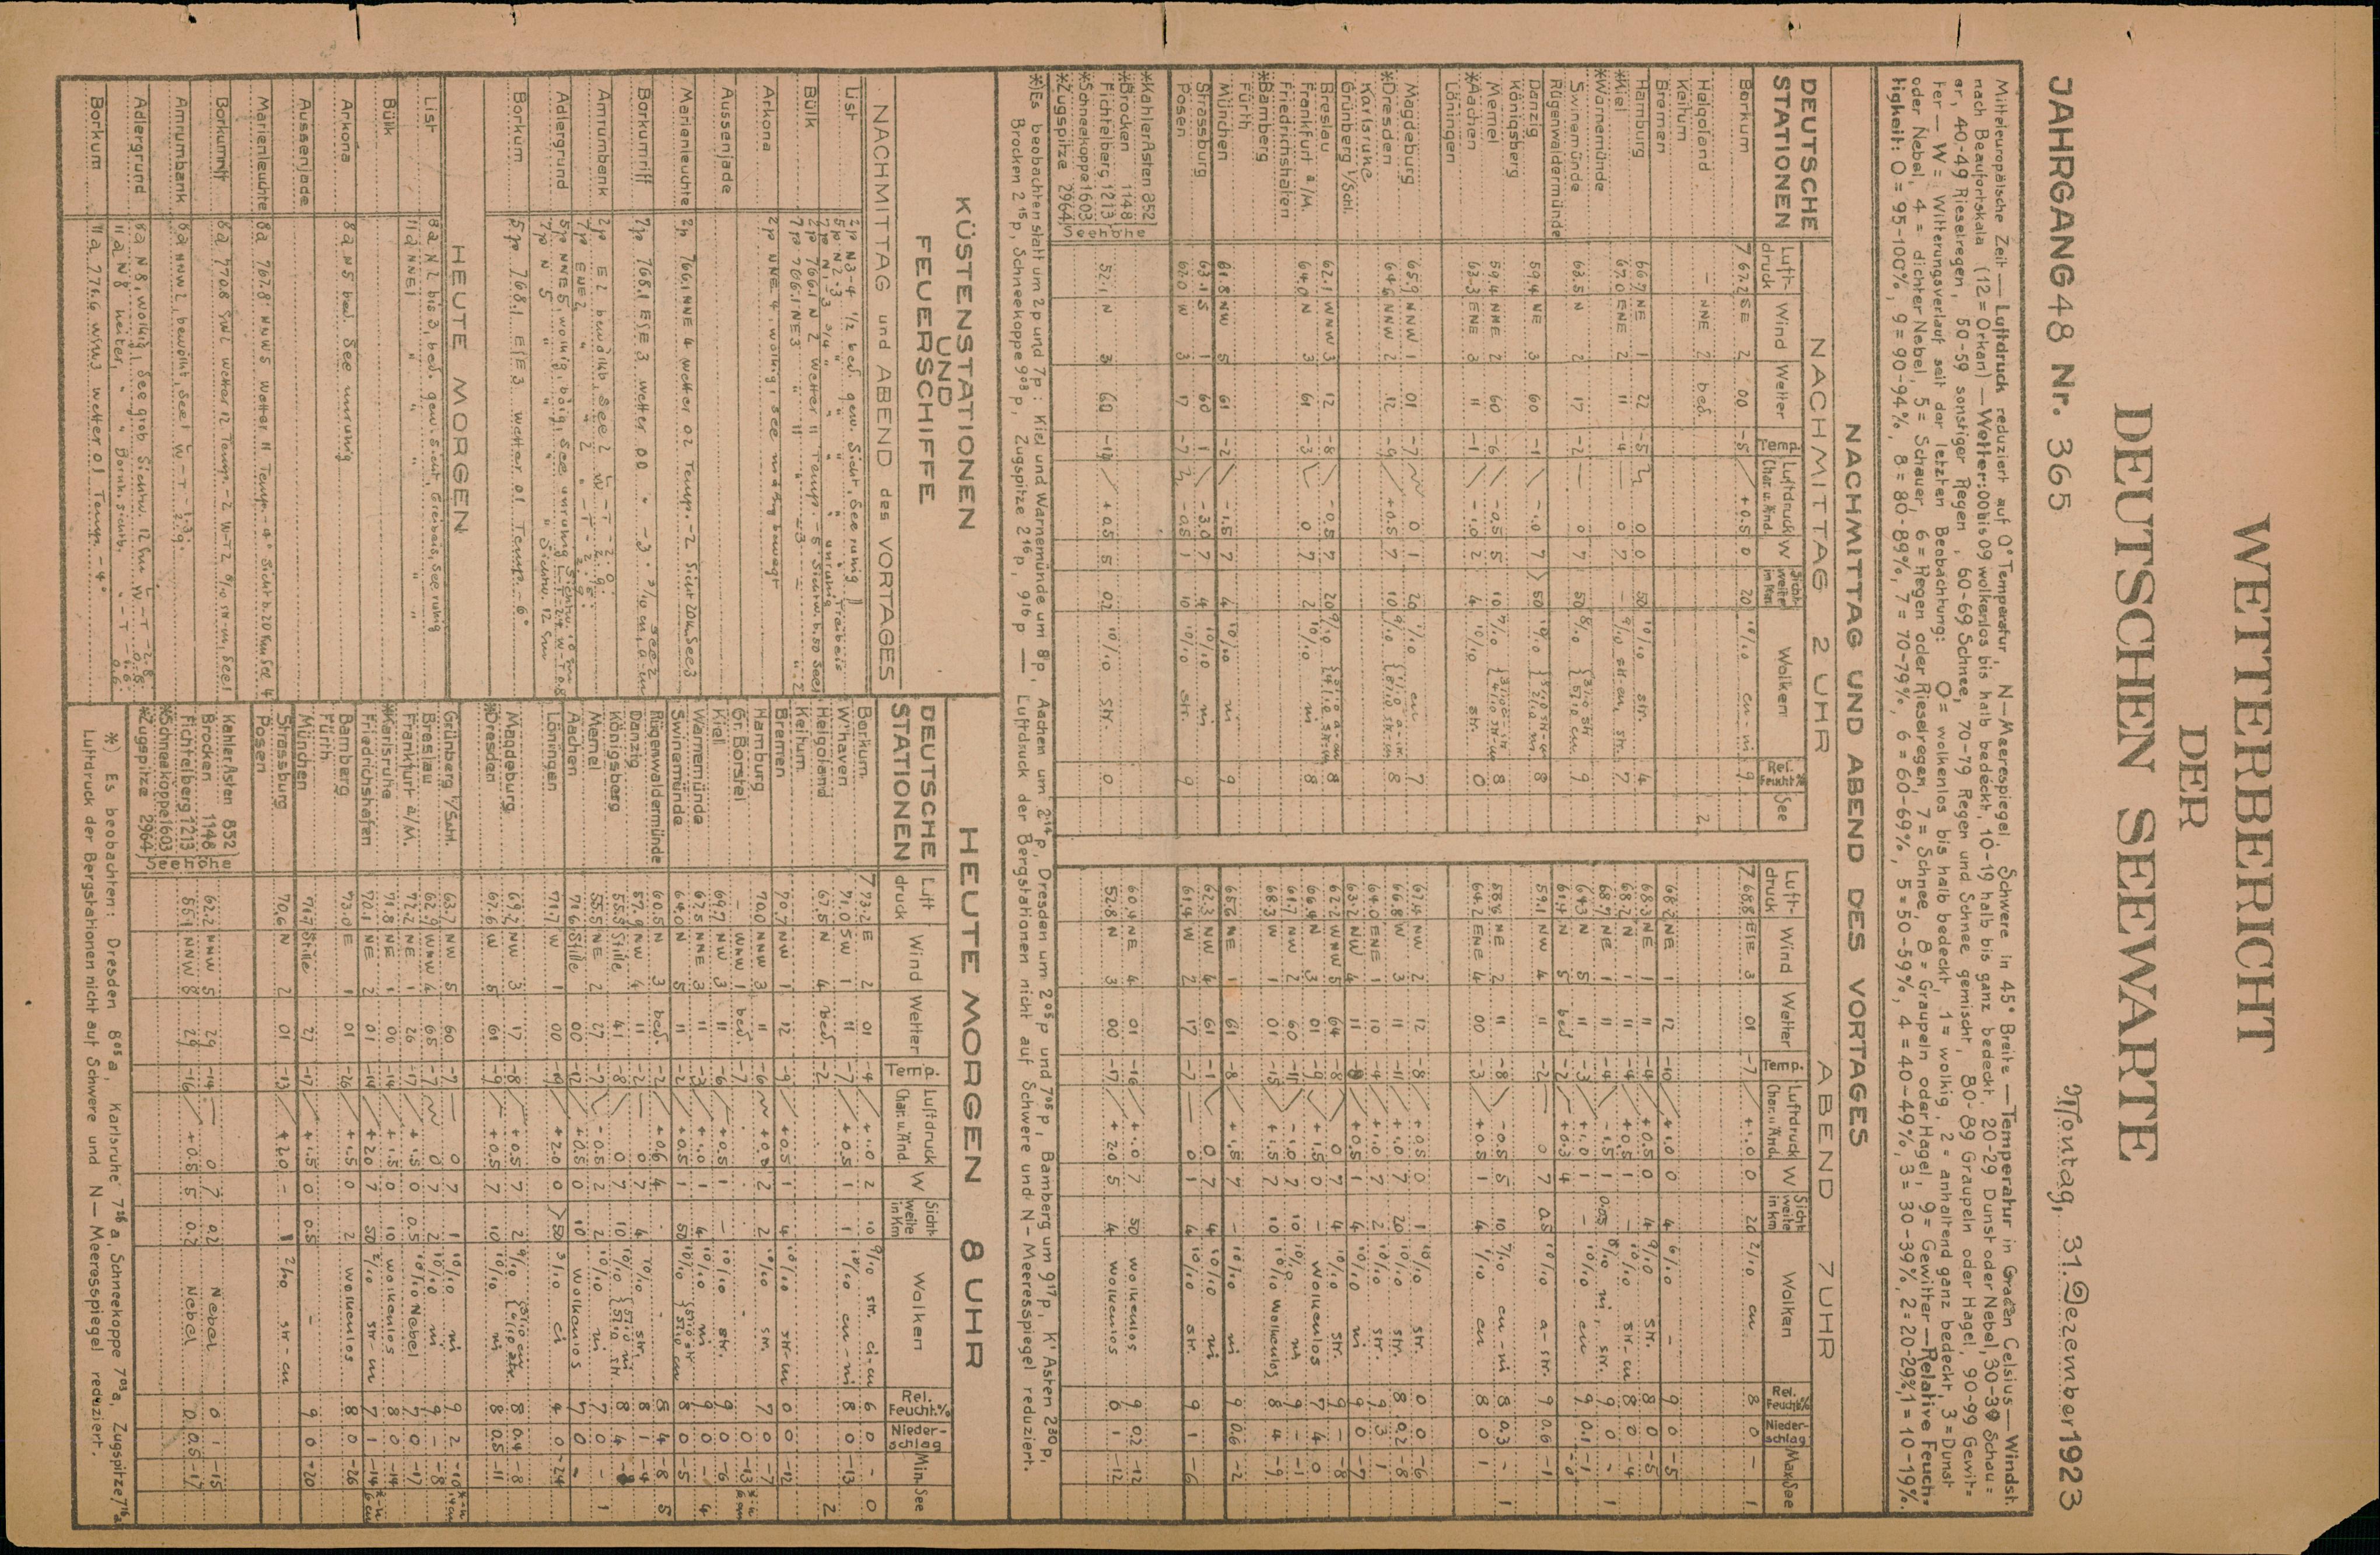 WETTERBERICHT
DER
DEUTSCHEN SEEWARTE
JAHRGANG 48 Nr. 365
Montag, 31. Dezember 1923
Mitteleuropäische Zeit — Luftdruck reduziert auf 0° Temperatur, N—Meeresspiegel, Schwere in 45° Breite — Temperatur in Graden Celsius — Windst.
nach Beaufortskala (12 = Orkan) — Wetter: 00 bis 09 wolkenlos bis halb bedeckt, 10-19 halb bis ganz bedeckt, 20-29 Dunst oder Nebel, 30-39 Schau=
er, 40-49 Rieselregen, 50-59 sonstiger Regen, 60-69 Schnee, 70-79 Regen und Schnee gemischt, 80-89 Graupeln oder Hagel, 90-99 Gewit=
ter — W = Witterungsverlauf seit der letzten Beobachtung: 0 = wolkenlos bis halb bedeckt, 1 = wolkig, 2 = anhaltend ganz bedeckt, 3 = Dunst
oder Nebel, 4 = dichter Nebel, 5 = Schauer, 6 = Regen oder Rieselregen, 7 = Schnee, 8 = Graupeln oder Hagel, 9 = Gewitter — Relative Feuch=
tigkeit: 0 = 95-100%, 9 = 90-94%, 8 = 80-89%, 7 = 70-79%, 6 = 60-69%, 5 = 50-59%, 4 = 40-49%, 3 = 30-39%, 2 = 20-29%, 1 = 10-19%.
NACHMITTAG UND ABEND DES VORTAGES
DEUTSCHE STATIONEN
NACHMITTAG 2 UHR
Luft-druck Wind Wetter Temp. Luftdruck Char. u. Änd. W Sicht weite in Km Wolken Rel. Feucht.% See
Borkum 767.2 SE 2 00 -5 +0.5 0 20 10/10 cu-ni 9
Helgoland – NNE 2 bed. 2
Keitum
Bremen
Hamburg 66.7 NE 1 22 -5 0 0 50 10/10 str. 4
*Kiel 67.0 ENE 2 11 -4 0 7 – 9/10 str.-cu, str. 7
*Warnemünde
Swinemünde 63.5 N 2 17 -2 0 7 50 8/10 9
Rügenwaldermünde
Danzig 59.4 NE 3 60 -1 -1.0 7 >50 10/10 8
Königsberg
Memel 59.4 NNE 2 60 -6 -0.5 5 10 9/10 8
*Aachen 63.3 ENE 3 11 -1 -1.0 2 4 10/10 str. 0
Löningen
Magdeburg 65.9 NNW 1 01 -7 0 1 20 1/10 cu 7
*Dresden 64.6 NNW 2 12 -9 +0.5 7 10 9/10 8
Karlsruhe
Grünberg i/Schl.
Breslau 62.1 WNW 3 12 -8 -0.5 7 20 9/10 8
Frankfurt a/M. 64.0 N 3 61 -3 0 7 2 10/10 ni 8
Friedrichshafen
*Bamberg
Fürth
München 61.8 NW 5 61 -2 -1.5 7 4 10/10 ni 9
Strassburg 63.1 S 1 60 1 -3.0 7 4 10/10 ni
Posen 62.0 W 3 17 -7 -0.5 1 10 10/10 str. 9
*Kahler Asten 852
*Brocken 1148
Fichtelberg 1213 52.1 N 3 60 -19 +0.5 5 02 10/10 str. 0
*Schneekoppe 1603
*Zugspitze 2964
Seehöhe
ABEND 7 UHR
Luft-druck Wind Wetter Temp. Luftdruck Char. u. Änd. W Sicht weite in Km Wolken Rel. Feucht.% Nieder-schlag Max. See
768.8 ESE 3 01 -7 +1.0 0 20 2/10 cu 8 0 1
68.2 NE 1 12 -10 +1.0 0 4 6/10 – 9 0 -5
68.3 NE 1 11 -4 +0.5 0 4 9/10 str. 8 0 -5
68.2 N 1 11 -4 +0.5 1 – 10/10 str-cu 8 0 -4
68.7 NE 1 11 -4 -1.5 1 0.05 8/10 ni, str. 9 0 - 1
64.3 N 5 11 -3 +1.0 1 – 10/10 cu 9 0.1 -1
61.4 N 5 bed -2 +0.3 4
59.1 NW 4 11 -2 0 7 0.5 10/10 a-str. 9 0.6 -1
58.8 NE 2 11 -8 -0.5 5 10 7/10 cu-ni 8 0.3 - 1
64.2 ENE 4 00 -3 +0.5 1 4 1/10 cu 8 0 1
67.4 NW 2 12 -8 +0.5 0 1 10/10 str. 0 0 -6
66.8 W 3 11 -11 +1.0 7 20 10/10 str. 8 0.2 -8
64.0 ENE 1 10 -4 +1.0 7 2 10/10 str. 9 3 1
63.2 NW 4 11 +0.5 1 4 10/10 ni 9 0 -7
62.2 WNW 5 64 -8 0 7 4 10/10 str. 9 1 -8
66.4 N 3 01 -9 +1.5 0 – wolkenlos 7 4 0
61.7 NW 2 60 -11 -1.0 7 10 10/10 ni 9 -1
68.3 W 1 01 -15 +1.5 7 10 wolkenlos 8 4 -9
65.6 NE 1 61 -8 +1.5 7 – 10/10 ni 9 0.6 -2
62.3 NW 4 61 -1 0 7 4 10/10 ni
61.4 W 2 17 -7 0 1 4 10/10 str. 9 1 -6
60.4 NE 4 01 -16 +1.0 7 50 wolkenlos 9 0.2 -12
52.8 N 3 00 -17 +2.0 5 4 wolkenlos 6 1 -12
*) Es beobachten statt um 2 p und 7 p: Kiel und Warnemünde um 8 p, Aachen um 2¹⁴ p, Dresden um 2⁰⁵ p und 7⁰⁵ p, Bamberg um 9¹⁷ p, K'Asten 2³⁰ p,
Brocken 2¹⁵ p, Schneekoppe 9⁰³ p, Zugspitze 2¹⁶ p, 9¹⁶ p — Luftdruck der Bergstationen nicht auf Schwere und N—Meeresspiegel reduziert.
KÜSTENSTATIONEN
UND
FEUERSCHIFFE
NACHMITTAG und ABEND des VORTAGES
List 2p N 3-4 1/2 bed. gew. Sicht, See ruhig
5p N 2-3
7p N 3
Bülk 2p 766.1 N 2 Wetter 11 Temp. -5 Sichtw. b. 50 See 1
7p 766.1 NE 3 " 11 " -3 " 2
Arkona 2p NNE 4 wolkig, See mäßig bewegt
Aussenjade
Marienleuchte 2p 766.1 NNE 4 Wetter 02 Temp. -2 Sicht 20 Km See 3
Borkumriff 7p 768.1 ESE 3 Wetter 00 " -3
Amrumbank 2p E 2 bewölkt, See 2
7p ENE 2
Adlergrund 5p NNE 5, wolkig, böig, See unruhig
7p N 5
Borkum 5p 768.1 ESE 3 Wetter 01 Temp. -6°
HEUTE MORGEN
List 8a N 2 bis 3, bed. gew. Sicht, Treibeis, See ruhig
11a NNE 1 " " " "
Bülk
Arkona 8a N 5 bed. See unruhig
Aussenjade
Marienleuchte 8a 767.8 NNW 5 Wetter 11 Temp. -4° Sicht b. 20 Km See 4
Borkumriff 8a 770.8 SW 2 Wetter 12 Temp. -2
Amrumbank 8a NNW 2, bewölkt, See 1
Adlergrund 8a N 8, wolkig, See grob Sichtw. 12 Km
11a N 8 heiter, " " Bornh. sichtb.
Borkum 11a 774.6 WSW 3 Wetter 01 Temp. -4°
HEUTE MORGEN 8 UHR
DEUTSCHE STATIONEN
Luft druck Wind Wetter Temp. Luftdruck Char. u. Änd. W Sicht weite in Km Wolken Rel. Feucht.% Nieder-schlag Min. See
Borkum 773.2 E 2 01 -4 +1.0 2 10 9/10 str. ci-cu 6 0 - 0
W'haven 71.0 SW 1 11 -7 +0.5 1 1 10/10 cu-ni 8 0 -13
Helgoland 67.5 N 4 bed. -2 2
Keitum
Bremen 70.7 NW 1 12 -9 +0.5 1 4 10/10 str-cu 0 0 -12
Hamburg 70.0 NNW 3 11 -6 2 2 10/10 str. 7 0 -7
Gr. Borstel – WNW 1 bed. -7 0 -13
Kiel 69.7 NW 3 11 -6 +0.5 1 – 10/10 str. 9 0 -6
Warnemünde 67.5 NNE 3 11 -3 +1.0 1 4 10/10 ni 9 0 - 4
Swinemünde 64.0 N 5 11 -2 +0.5 1 50 10/10 8 0 -5
Rügenwaldermünde 60.5 N 3 bed. -2 +0.6 4 8 4 -8 5
Danzig 57.9 NW 4 11 -2 0 7 4 10/10 str. 8 1 -4
Königsberg 55.5 Stille 41 -8 0 7 10 10/10 8 4
Memel 55.5 NE 2 27 -7 -0.5 2 2 10/10 ni 7 0 - 1
Aachen 71.6 Stille 00 -12 +0.5 0 10 wolkenlos 7 0 -
Löningen 71.7 W 1 00 -19 +2.0 0 >50 3/10 ci 4 0 -24
Magdeburg 69.2 NW 3 17 -8 +0.5 7 2 9/10 8 0.4 -8
*Dresden 67.6 W 5 61 -9 +0.5 7 10 10/10 ni 8 0.5 -11
Grünberg i/Schl. 63.7 NW 5 60 -7 0 7 1 10/10 ni 9 2 -10
Breslau 62.9 WNW 4 65 -7 0 7 2 10/10 ni 9 – -8
Frankfurt a/M. 72.2 NE 1 26 -17 +1.5 0 0.5 10/10 Nebel 7 0 -17
*Karlsruhe 71.8 NE 1 00 -14 +1.5 0 10 wolkenlos 8 0 -14
Friedrichshafen 70.1 NE 2 01 -14 +2.0 7 50 2/10 str-cu 7 1 -14
Bamberg 73.0 E 1 01 -26 +1.5 0 2 wolkenlos 8 0 -26
Fürth
München 71.7 Stille 27 -17 +1.5 0 0.5 – 9 0 -20
Strassburg 70.6 N 2 01 -13 +2.0 – 1 2/10 str-cu
Posen
Kahler Asten 852
Brocken 1148 62.2 NNW 5 29 -14 0 7 0.2 Nebel 0 1 -15
Fichtelberg 1213 55.1 NNW 8 29 -16 +0.5 5 0.2 Nebel 0 0.5 -17
*Schneekoppe 1603
*Zugspitze 2964
Seehöhe
*) Es beobachten: Dresden 8⁰⁵ a, Karlsruhe 7²⁶ a, Schneekoppe 7⁰³ a, Zugspitze 7¹⁶ a
Luftdruck der Bergstationen nicht auf Schwere und N—Meeresspiegel reduziert.